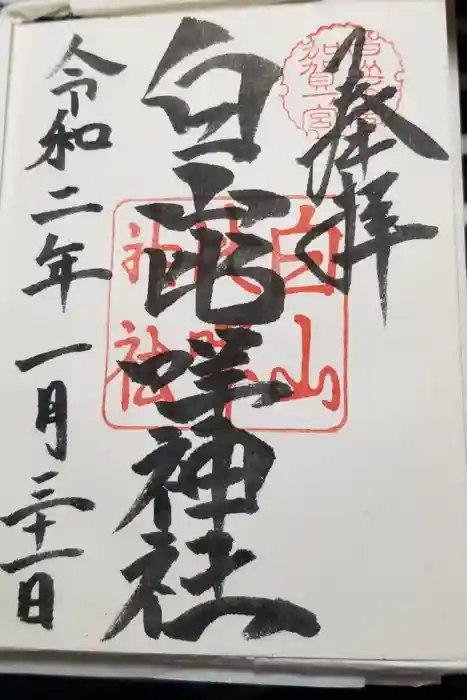 奉拝
白山比咩神社
令和二年一月三十一日
加賀一宮
白山
比咩
神社